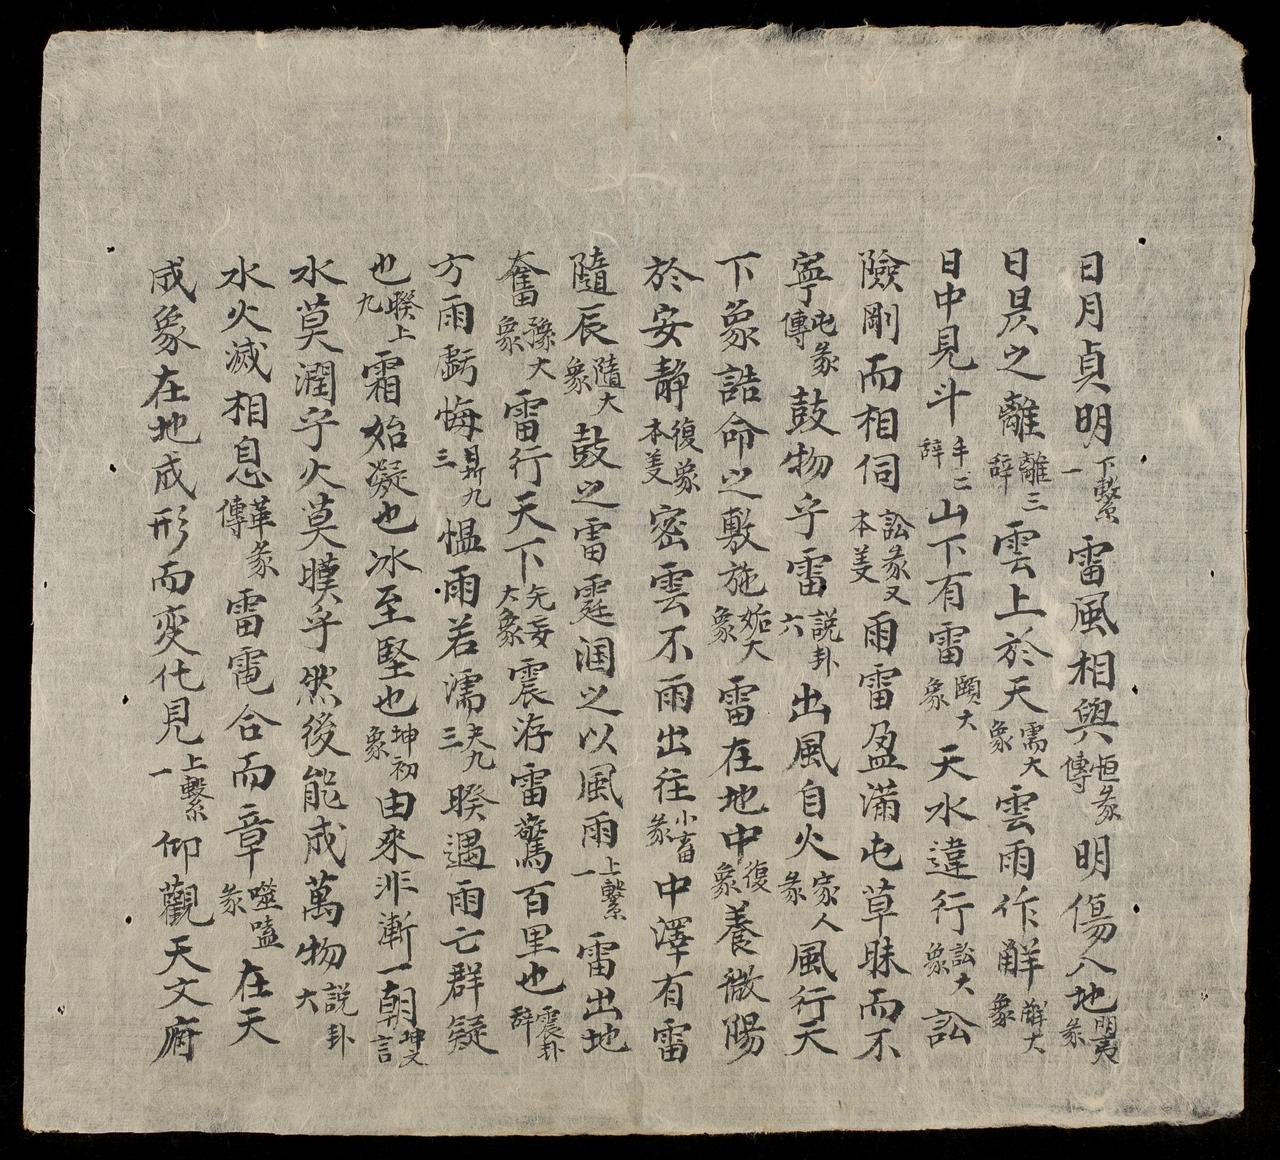 日月貞明下繫一雷風相與恒彖傳明傷入地明夷彖
日昃之離離三辞雲上於天需大象雲雨作解解大象
日中見斗丰二辞山下有雷頤大象天水違行訟大象訟
險剛而相伺訟彖又本羑雨雷盈滿屯草昧而不
寧屯彖傳鼓物乎雷説卦六出風自火家人彖風行天
下象誥命之敷施姤大象雷在地中復象養微陽
於安靜復象本羑密雲不雨出往小畜彖中澤有雷
隨辰隨大象鼓之雷霆潤之以風雨上繫一雷出地
奮豫大象雷行天下无妄大象震洊雷驚百里也震卦辞
方雨虧悔鼎九三愠雨若濡夬九三暌遇雨亡群疑
也暌上九霜始凝也冰至堅也坤初象由來非漸一朝坤文言
水莫潤乎火莫暵乎然後能成萬物説卦大
水火滅相息革彖傳雷電合而章噬嗑彖在天
成象在地成形而変化見上繫一仰觀天文府